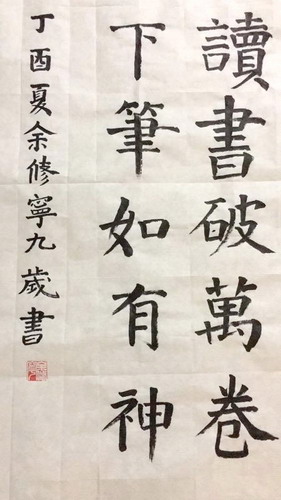 讀書破萬卷
下筆如有神
丁酉夏余修寧九歲書